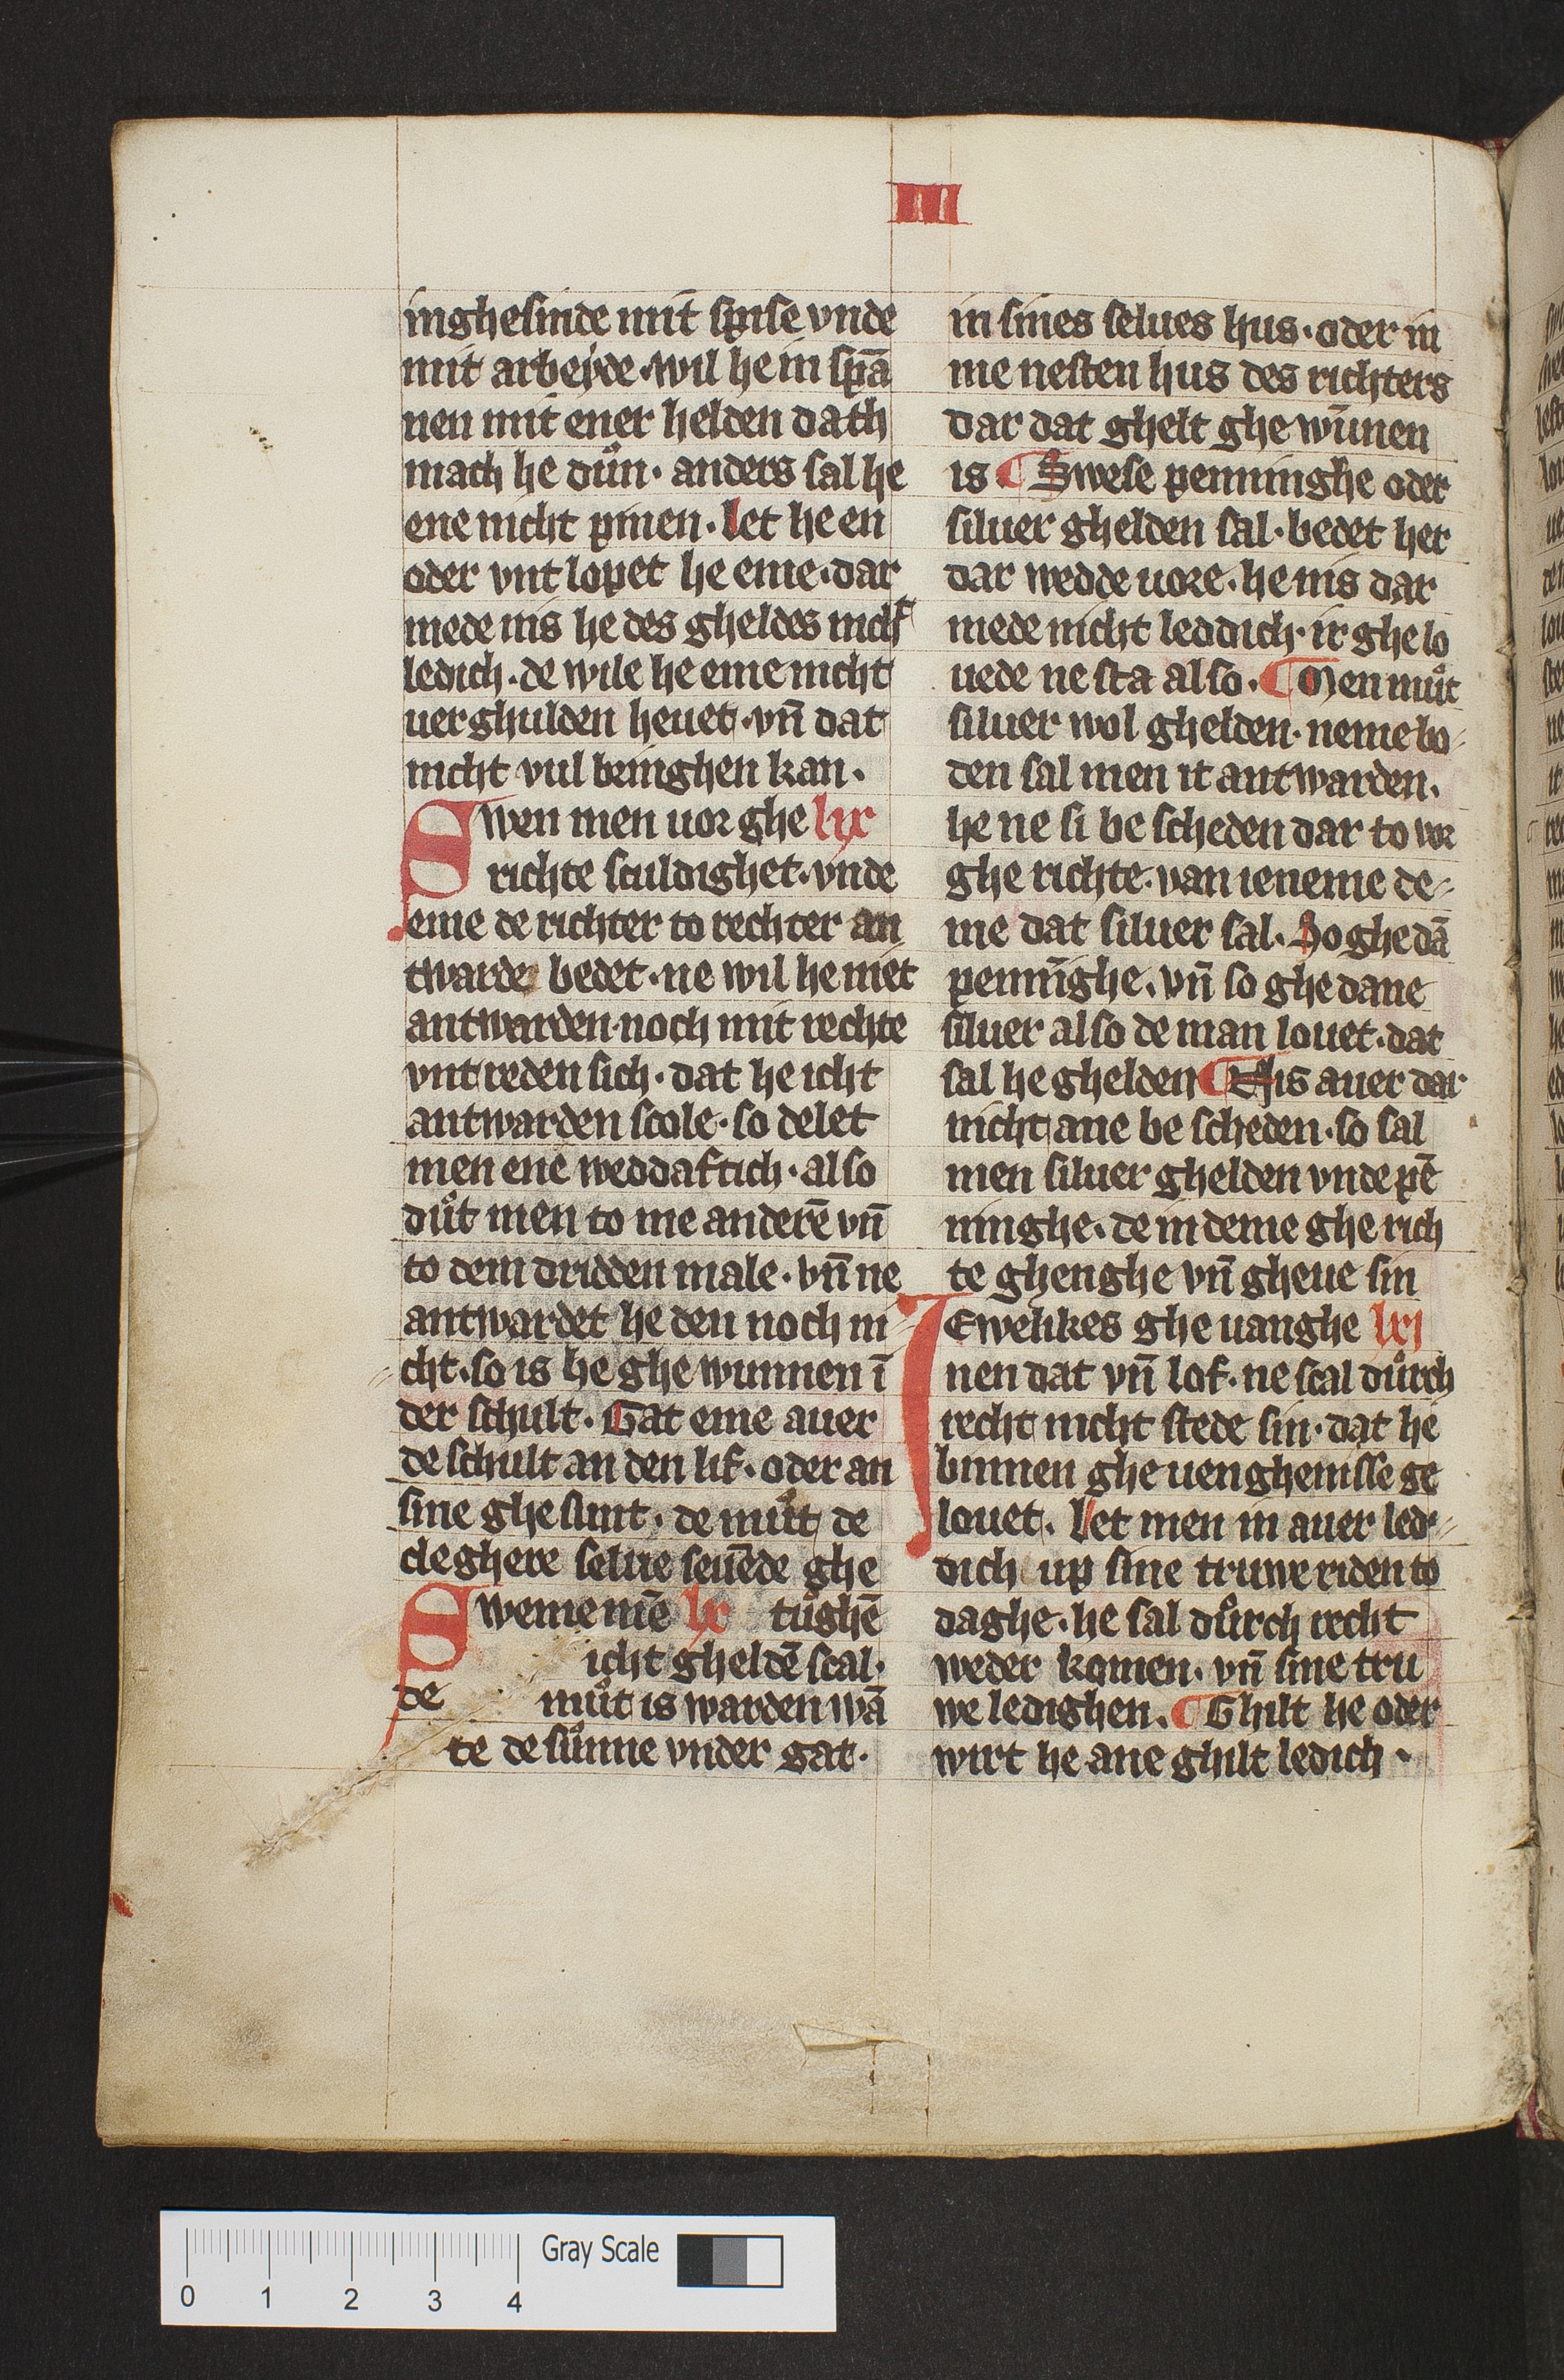 III
inghesinde mit spise vnde
mit arbeyde · wil he in spā
nen mit ener helden dath
mach he důn · anders sal he
ene nicht pinen · Let he en
oder vnt lopet he eme · dar
mede nis he des gheldes nicht
ledich · de wile he eme nicht
uerghulden heuet · vn̄ dat
nicht vul bringhen kan ·
Swen men uor ghe lix
richte sculdighet · vnde
eme de richter to rechter an
twarde bedet · ne wil he niet
antwarden noch mit rechte
vntreden sich · dat he icht
antwarden scole · so delet
men ene weddaftich · also
důt men to me anderē vn̄
to dem dridden male · vn̄ ne
antwardet he den noch ni
cht · so is he ghe wunnen ī
der schult · Gat eme auer
de schult an den lif · oder an
sine ghesunt · de můt de
cleghere selue seuēde ghe
Sweme mē lx tůghē
icht gheldē scal ·
de můt is warden wā
te de sůnne vnder gat ·
in sines selues hus · oder in
me nesten hus des richters
dar dat ghelt ghe wūnen
is ¶ Swese penninghe oder
siluer ghelden sal · bedet her
dar wedde uore · he nis dar
mede nicht leddich · ir ghe lo
uede ne sta also · ¶ Men můt
siluer wol ghelden · neme bo
den sal men it antwarden ·
he ne si be scheden dar to vor
ghe richte · van ieneme de
me dat siluer sal · So ghe dā
pennīghe · vn̄ so ghe dane
siluer also de man louet · dat
sal he ghelden ¶ This auer dar
nicht ane be scheden · so sal
men siluer ghelden vnde pē
ninghe · de in deme ghe rich
te ghenghe vn̄ gheue sin
IEwelikes ghe uanghe lxi
nen dat vn̄ lof · ne scal důrch
recht nicht stede sin · dat he
binnen ghe uenghenisse ge
louet · Let men in auer led
dich up sine truwe riden to
daghe · he sal důrch recht
weder komen · vn̄ sine tru
we ledighen · ¶ Ghilt he oder
wirt he ane ghilt ledich ·
Gray Scale
0 1 2 3 4